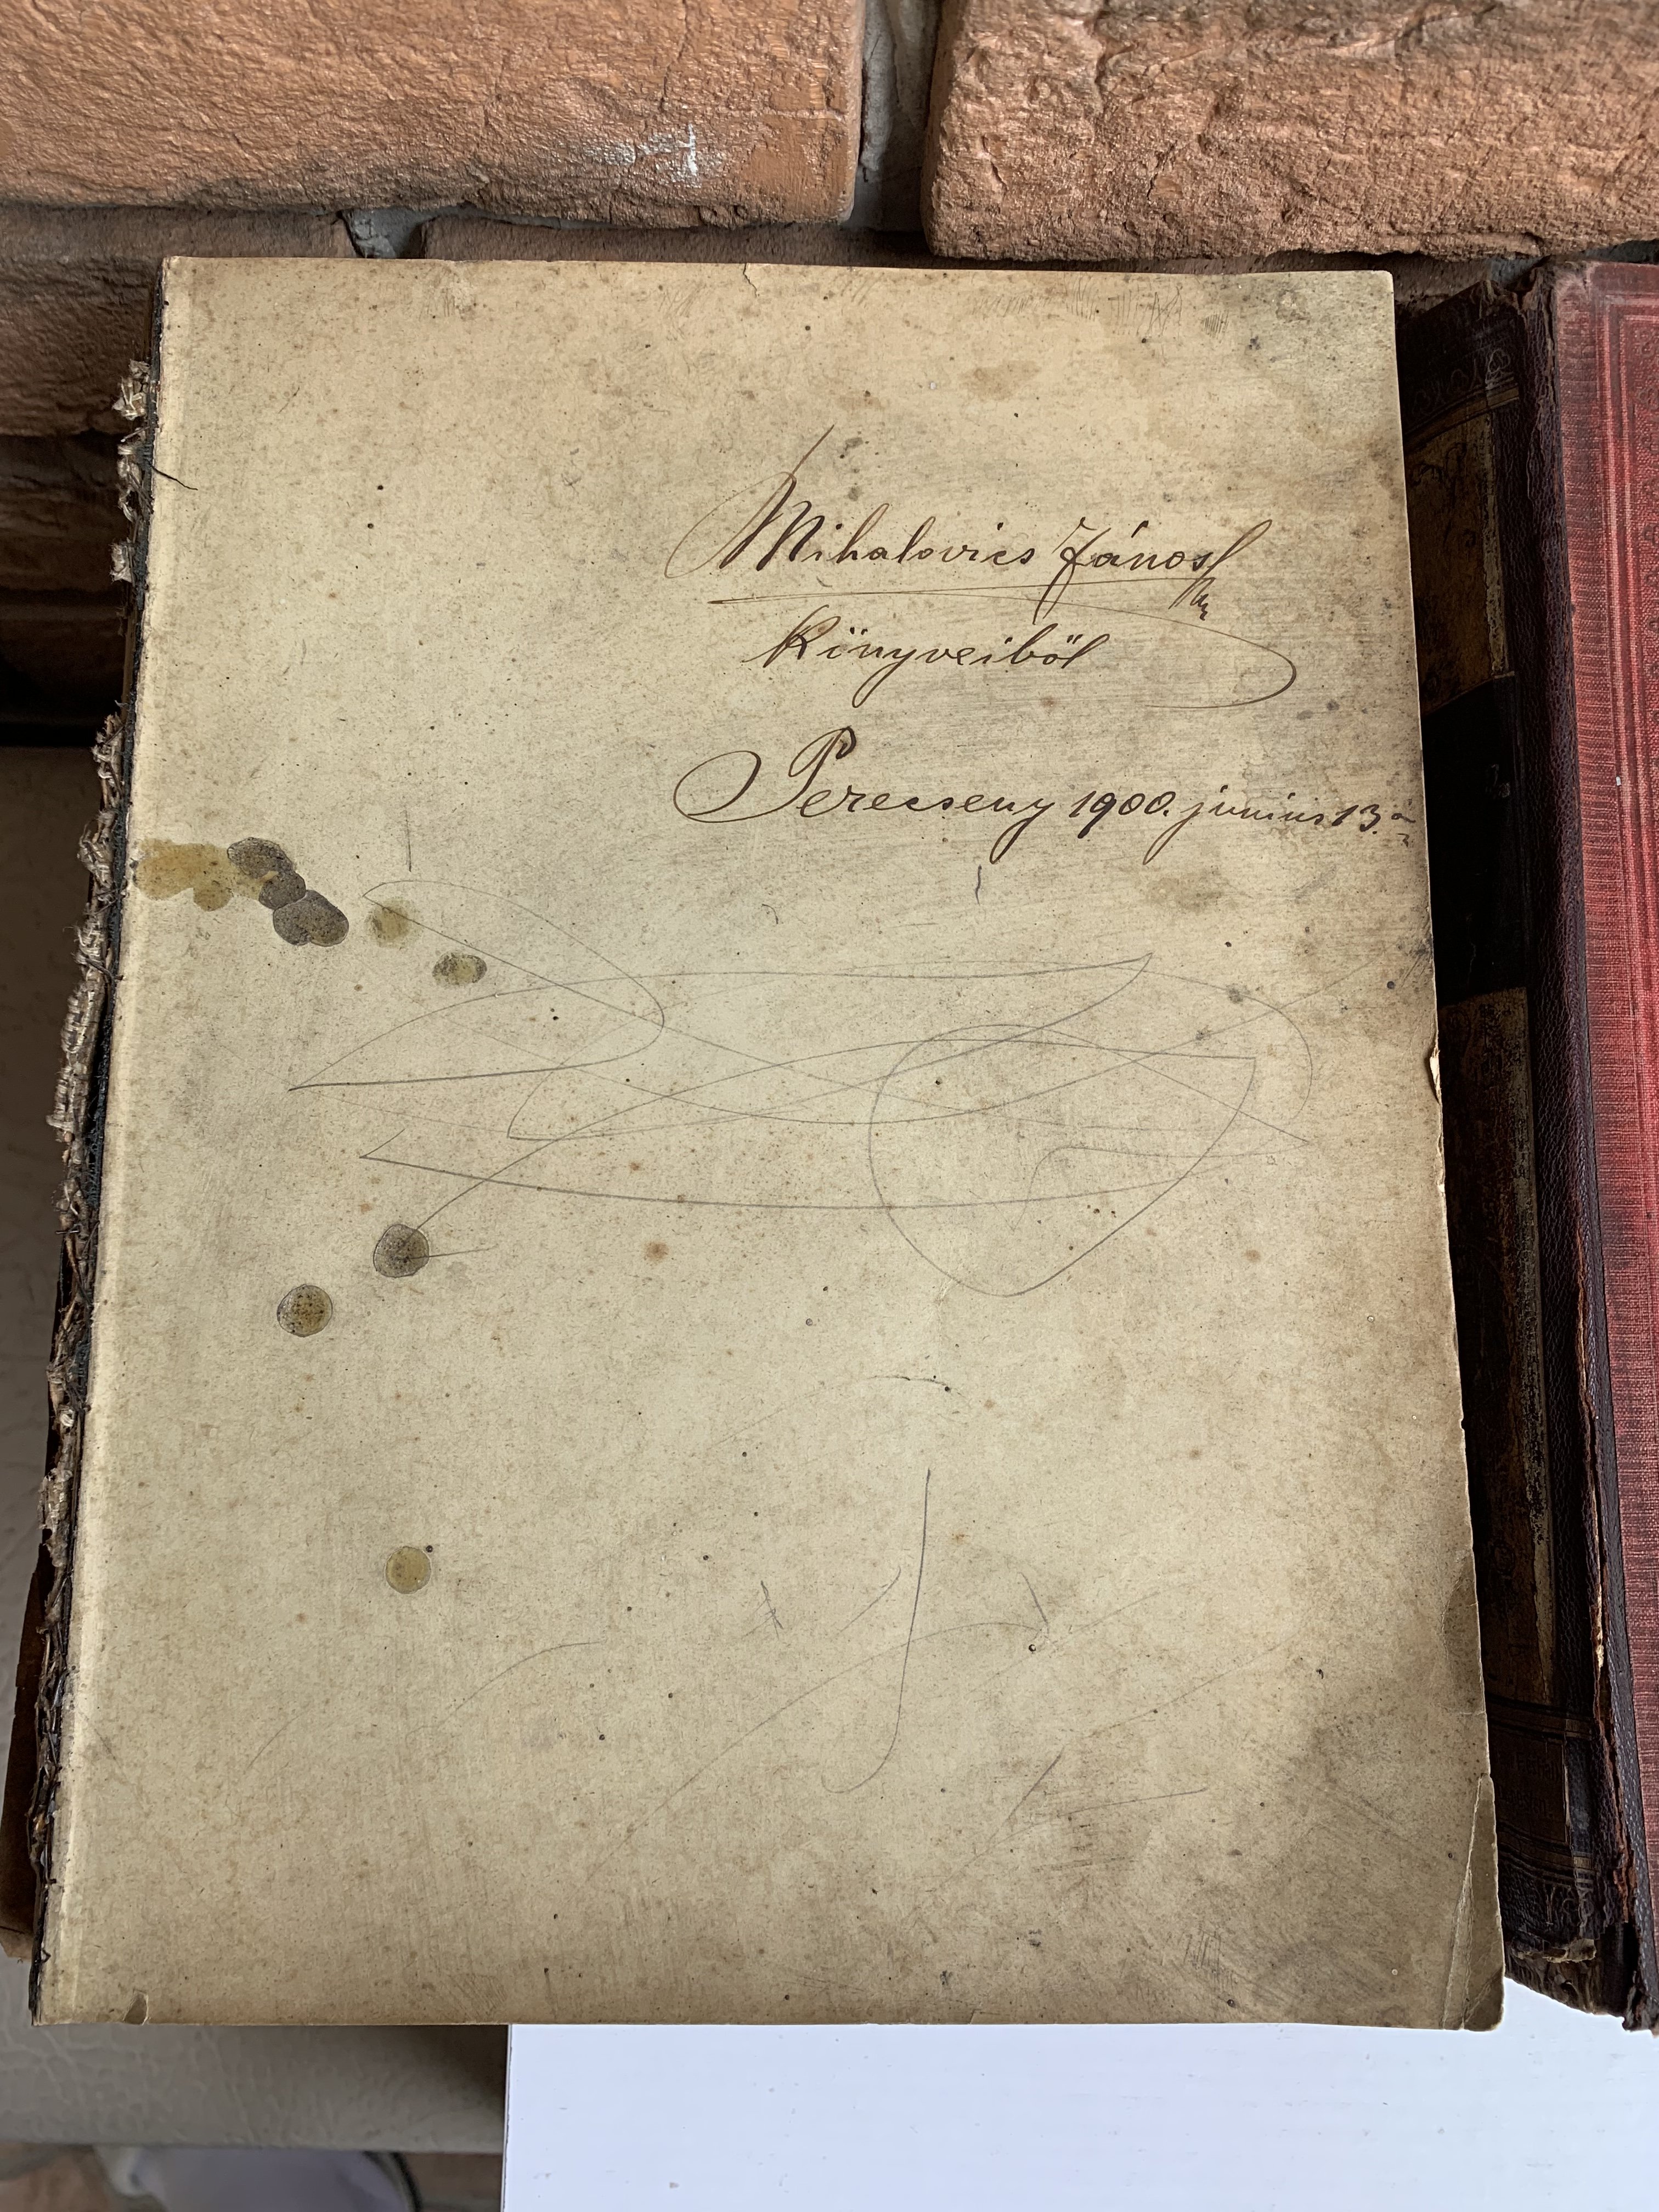 Mihalovics János
Könyveiből
Perecseny 1900. junius 13.án